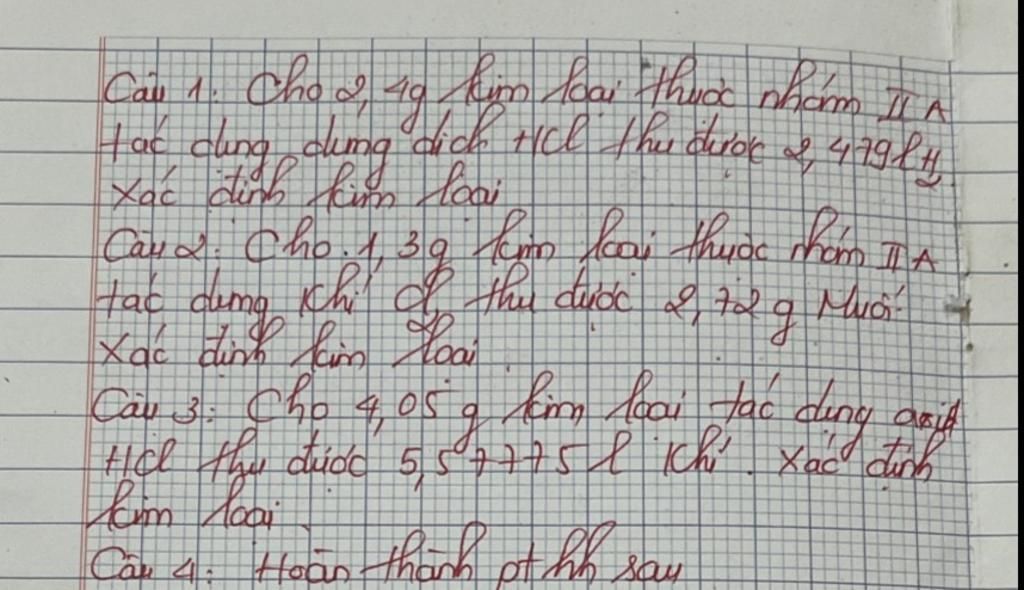 Câu 1: Cho 2,4g kim loại thuộc nhóm IIA
tác dụng dung dịch HCl thu được 2,479l H2
Xác định kim loại
Câu 2: Cho 1,3g kim loại thuộc nhóm IIA
tác dụng khí Cl2 thu được 2,72g Muối
Xác định kim loại
Câu 3: Cho 4,05g kim loại tác dụng axit
HCl thu được 5,57775 l khí. Xác định
kim loại.
Câu 4: Hoàn thành pthh sau